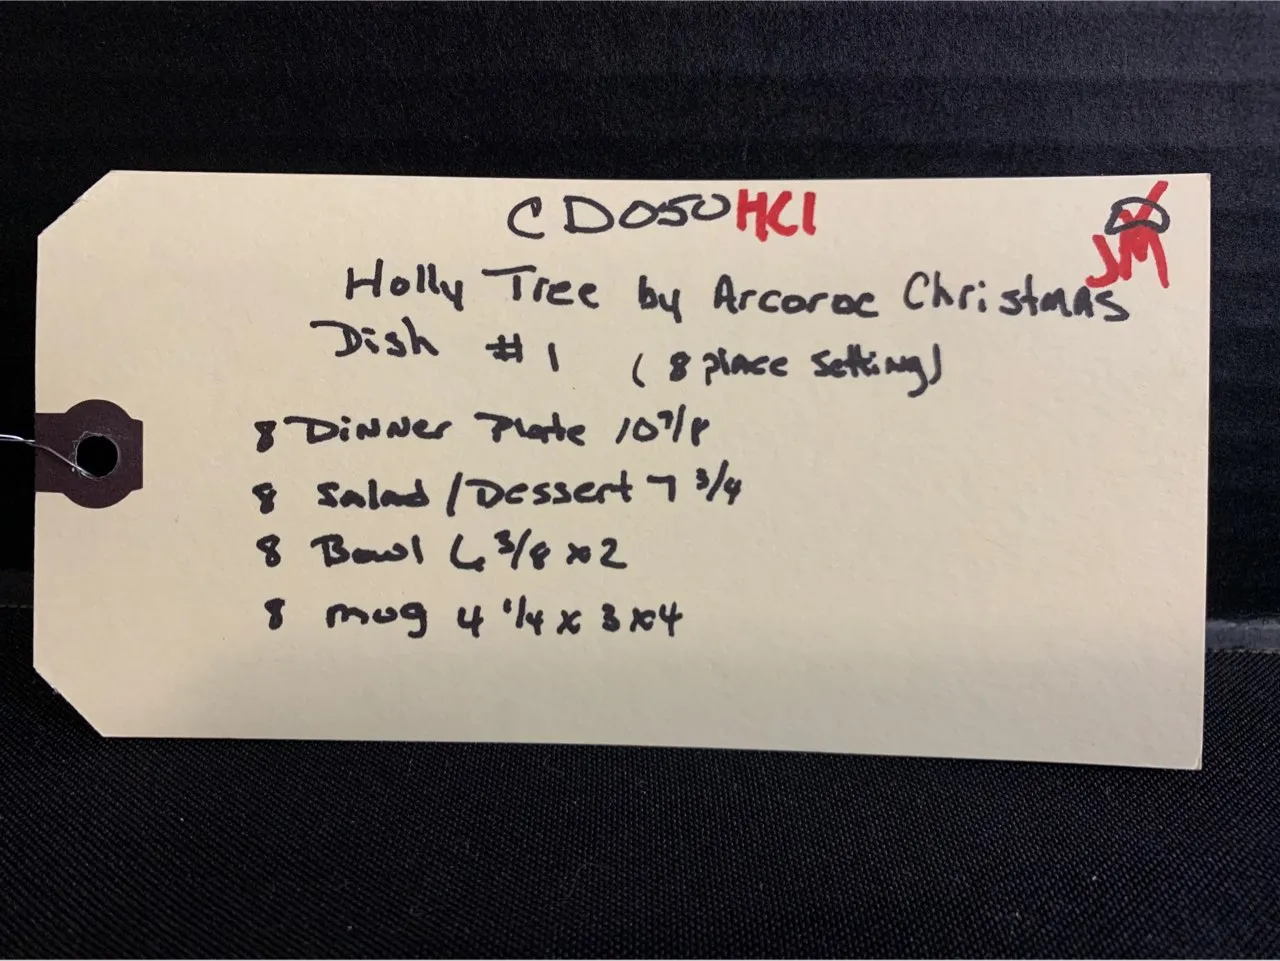 CD050HC1
JM
Holly Tree by Arcoroc Christmas
Dish #1 (8 place setting)
8 Dinner Plate 10 7/8
8 Salad/Dessert 7 3/4
8 Bowl 6 3/8 x 2
8 mug 4 1/4 x 3 x 4